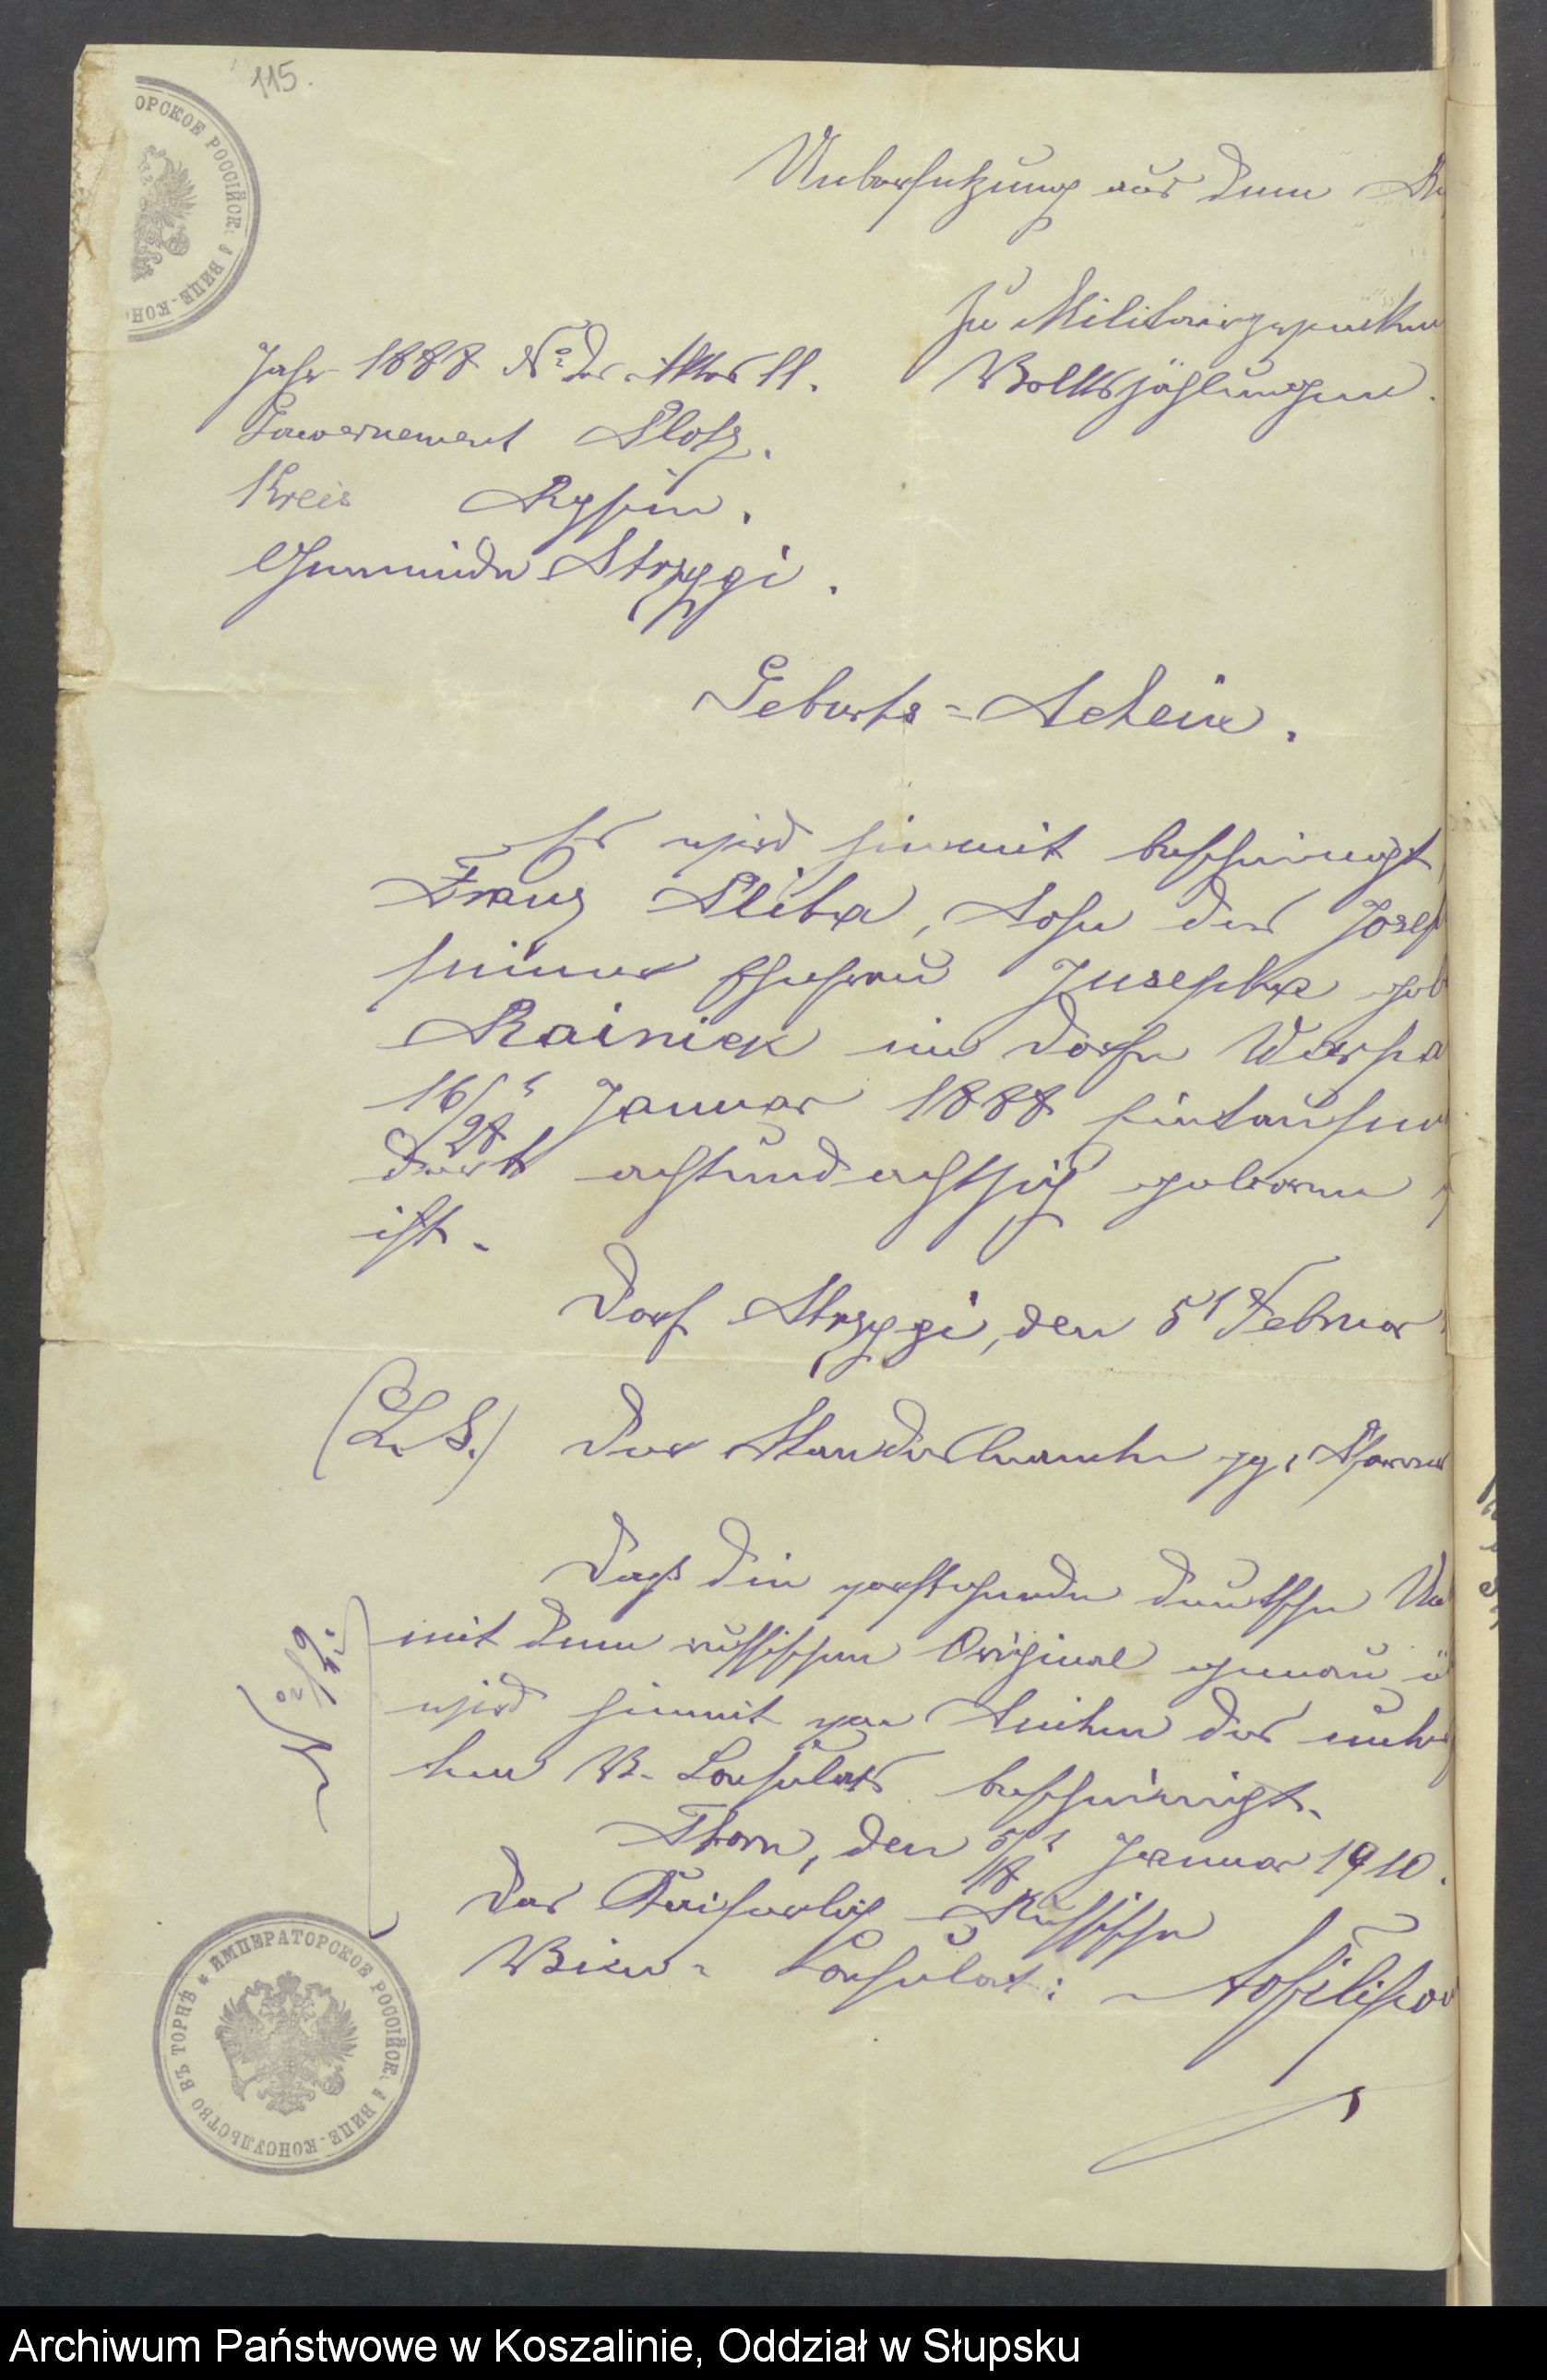 115.
ОРСКОЕ РОССІЙСК. ВИЦЕ-КОН
Uebersetzung aus dem
Zu Militairzwecken
Jahr 1888 No des Aktes 11.
Volkszählungen.
Gouvernement Plotz.
Kreis Rypin.
Gemeinde Strzygi.
Geburts-Schein.
Es wird hiermit bescheinigt,
Franz Plita, Sohn des Josef
seiner Ehefrau Josepha geb
Rainick im Dorfe
16/28t Januar 1888 Eintausend
dert achtundachtzig geboren
ist.
Dorf Strzygi, den 5t Februar
(L.S.) Der Standesbeamte gz: Pfarrer
Dass die vorstehende deutsche Ue
mit dem russischen Original genau ü
wird hiermit von Seiten des unter
ten V. Consulats bescheinigt.
Thorn, den 5/18t Januar 1910.
Das Kaiserlich Russische
Vice-Consulat:
№
ИМПЕРАТОРСКОЕ РОССІЙСК. ВИЦЕ-КОНСУЛЬСТВО ВЪ ТОРНѢ
Archiwum Państwowe w Koszalinie, Oddział w Słupsku